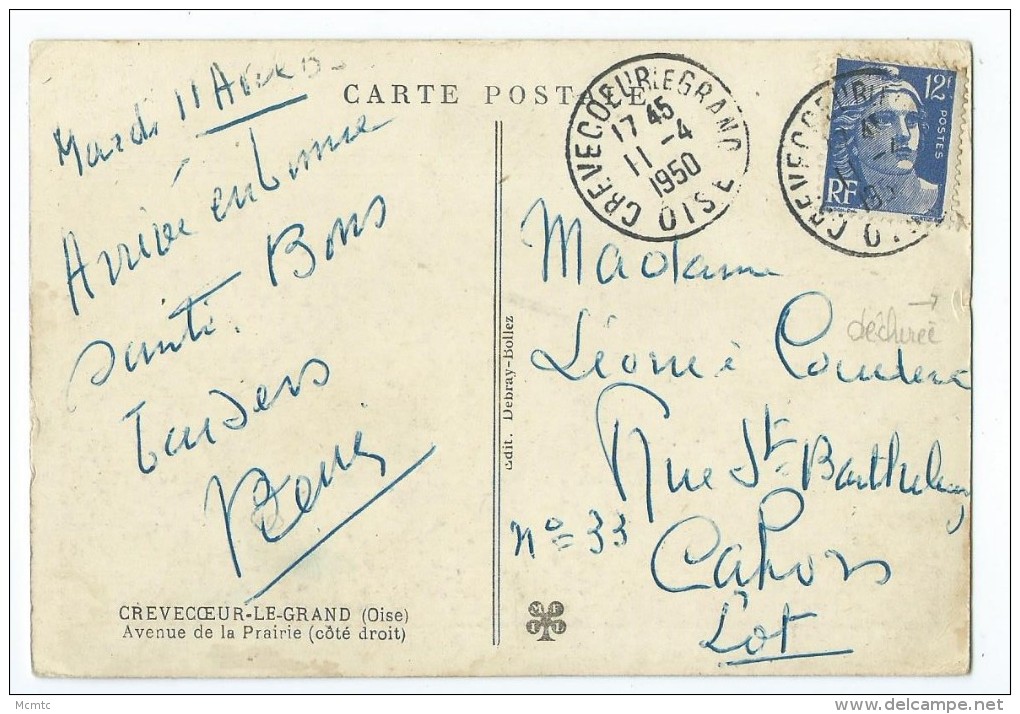 CARTE POSTALE
Mardi 11 Avril
Arrivé en bonne
santé. Bons
Baisers
CREVECOEUR LE GRAND
17 45
11 -4
1950
OISE
12F
POSTES
RF
Madame
Léonie
déchirée
Rue St Barthélemy
N° 33
Cahors
Lot
Edit. Debray-Bollez
CRÈVECŒUR-LE-GRAND (Oise)
Avenue de la Prairie (côté droit)
Mcmtc
delcampe.net